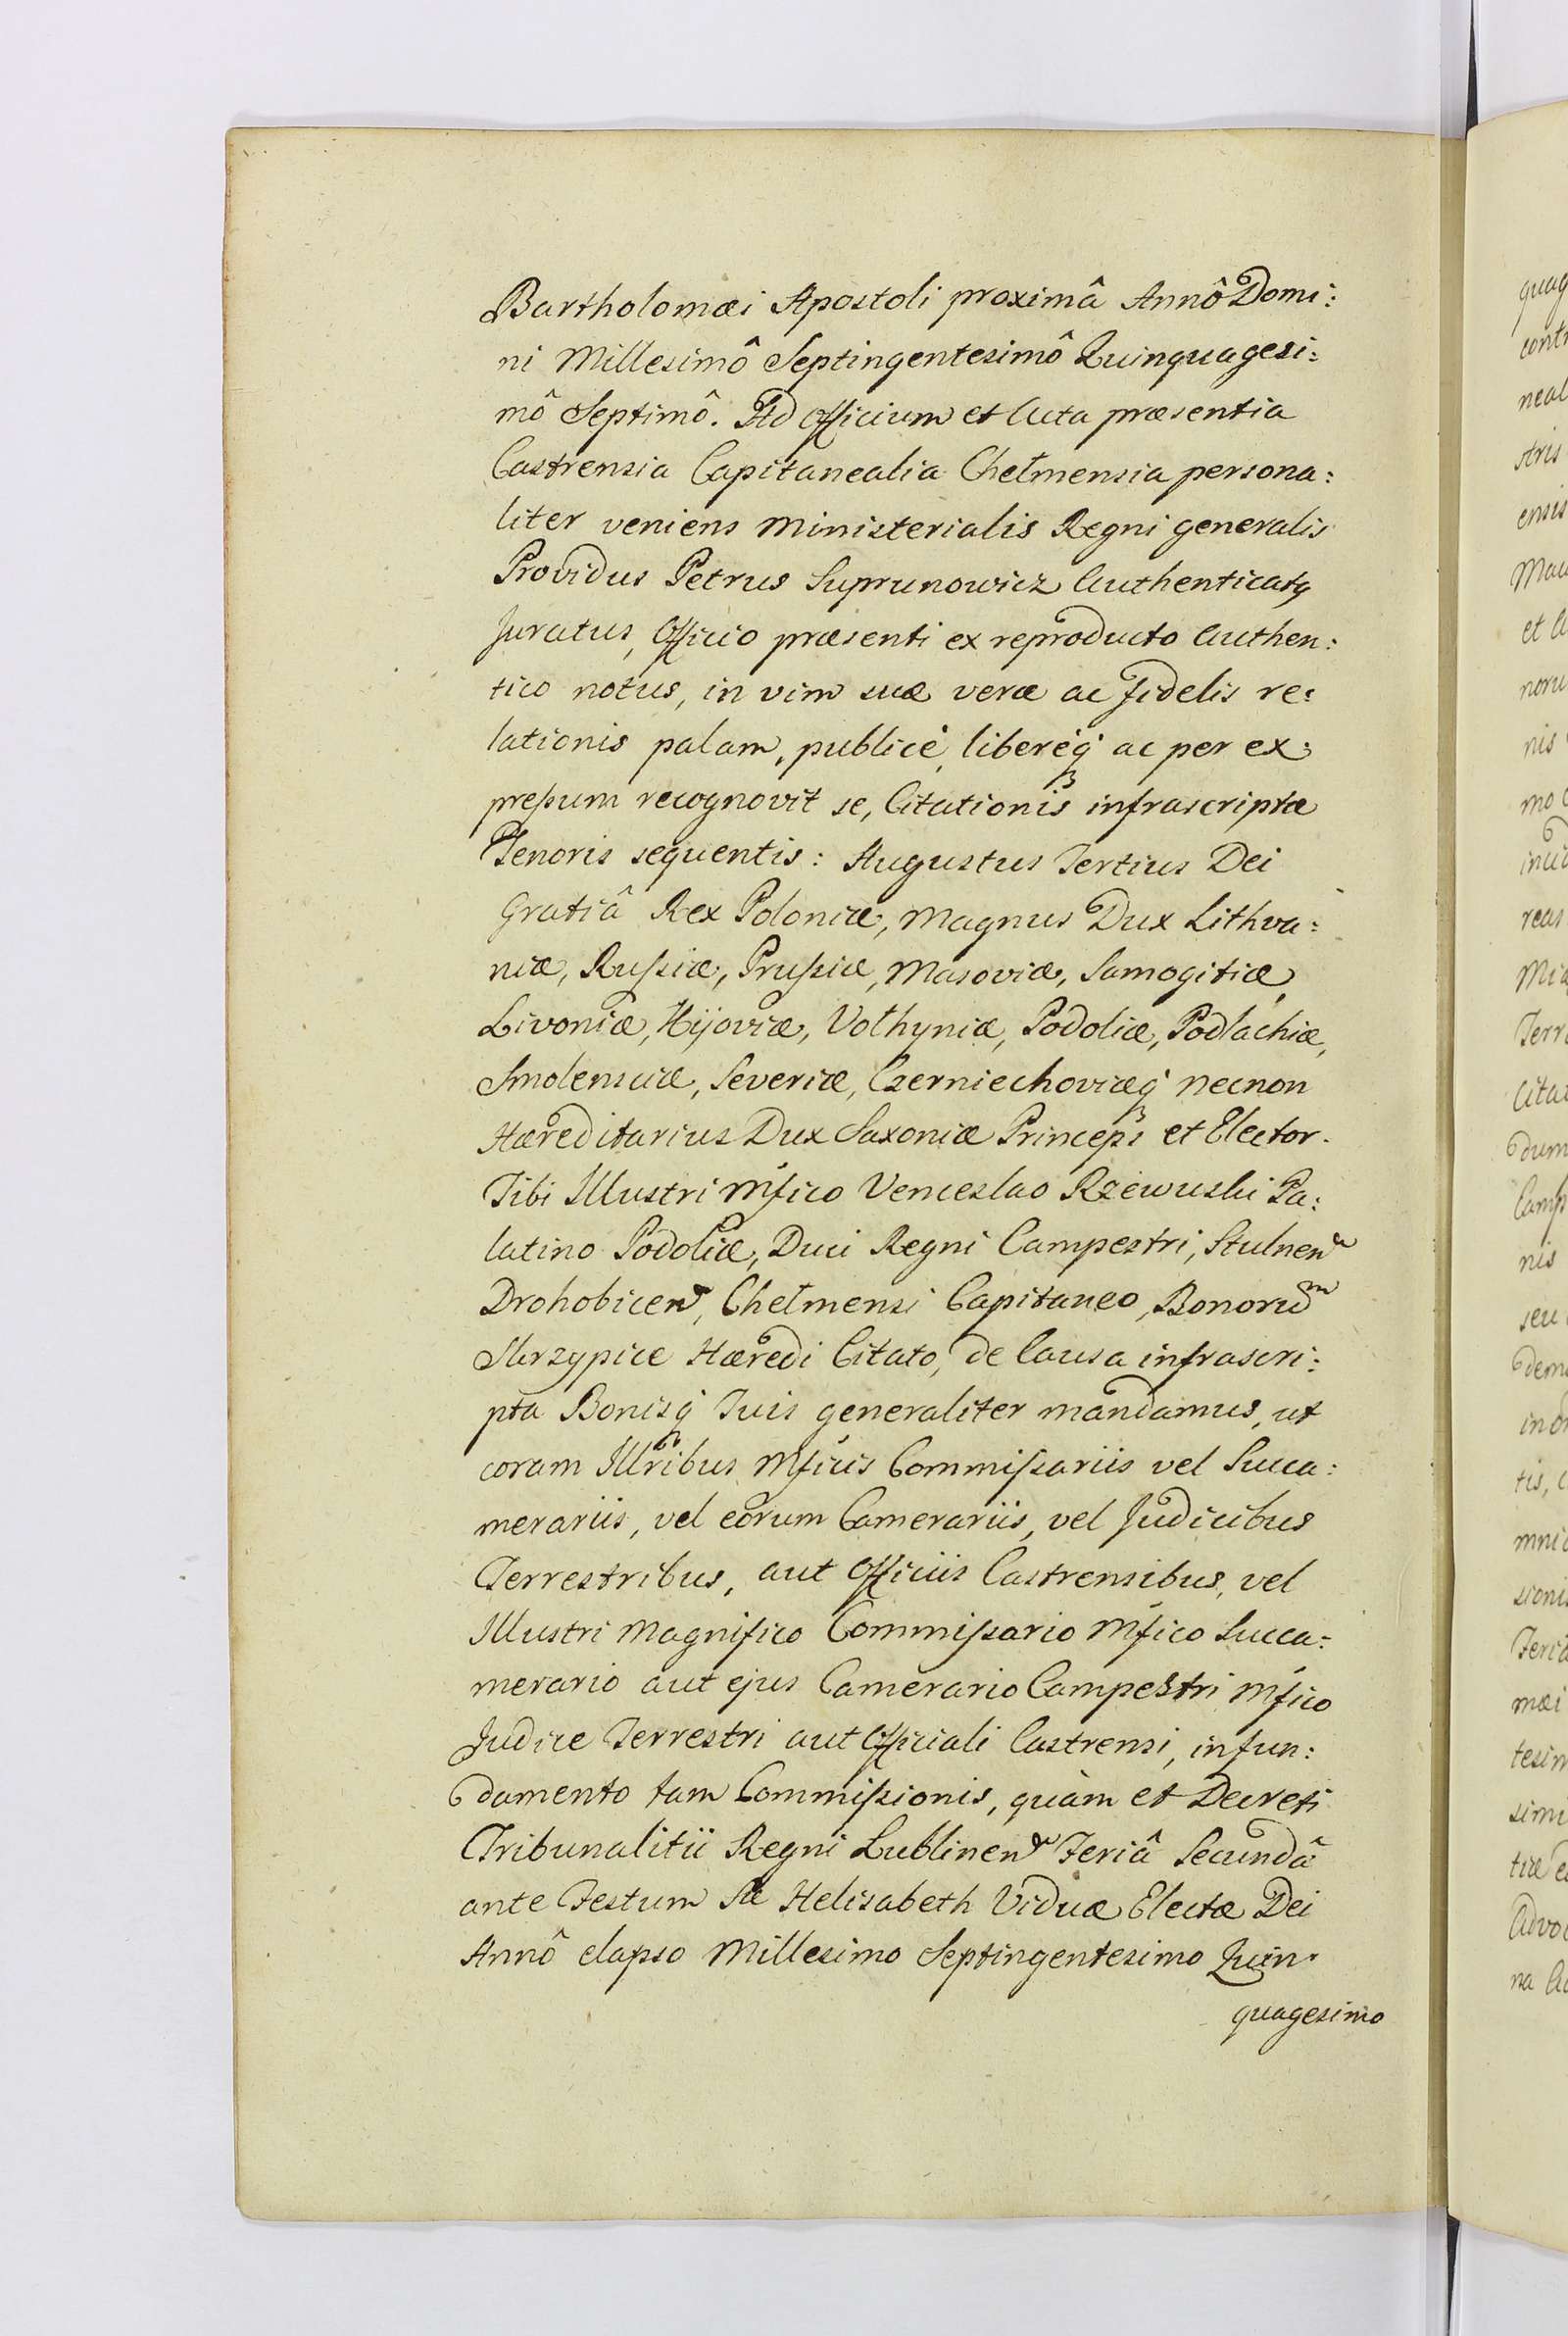 Bartholomæi Apostoli proximâ Annô Domi:
ni Millesimô Septingentesimô Quinquagesi:
mô Septimô. Ad Officium et Acta præsentia
Castrensia Capitanealia Chełmensia persona:
liter veniens Ministerialis Regni generalis
Providus Petrus Suprunowicz Authenticatq
Juratus, Officio præsenti ex reproducto Authen:
tico notus, in vim suæ veræ ac fidelis re:
lationis palam, publicè, liberèq ac per ex:
preßum recognovit se, Citationis infrascriptæ
Tenoris sequentis: Augustus Tertius Dei
Gratiâ Rex Poloniæ, Magnus Dux Lithva:
niæ, Rußiæ, Prußiæ, Masoviæ, Samogitiæ,
Livoniæ, Kijoviæ, Vołhyniæ, Podoliæ, Podlachiæ,
Smolensciæ, Severiæ, Czerniechoviæq necnon
Hæreditarius Dux Saxoniæ Princeps et Elector.
Tibi Illustri Mfico Venceslao Rzewuski Pa:
latino Podoliæ, Duci Regni Campestri, Stulnen
Drohobicen, Chełmensi Capitaneo, Bonorum
Skrzypice Hæredi Citato, de Causa infrascri:
pta Bonisq Tuis generaliter mandamus, ut
coram Illribus Mficis Commißariis vel Succa:
merariis, vel eorum Camerariis, vel Judicibus
Terrestribus, aut Officiis Castrensibus, vel
Illustri Magnifico Commißario Mfico Succa:
merario aut ejus Camerario Campestri Mfico
Judice Terrestri aut Officiali Castrensi, in fun:
damento tam Commißionis, quàm et Decreti
Tribunalitii Regni Lublinen Feriâ Secundâ
ante Festum Stæ Helisabeth Viduæ Electæ Dei
Annô elapso Millesimo Septingentesimo Quin:
quagesimo